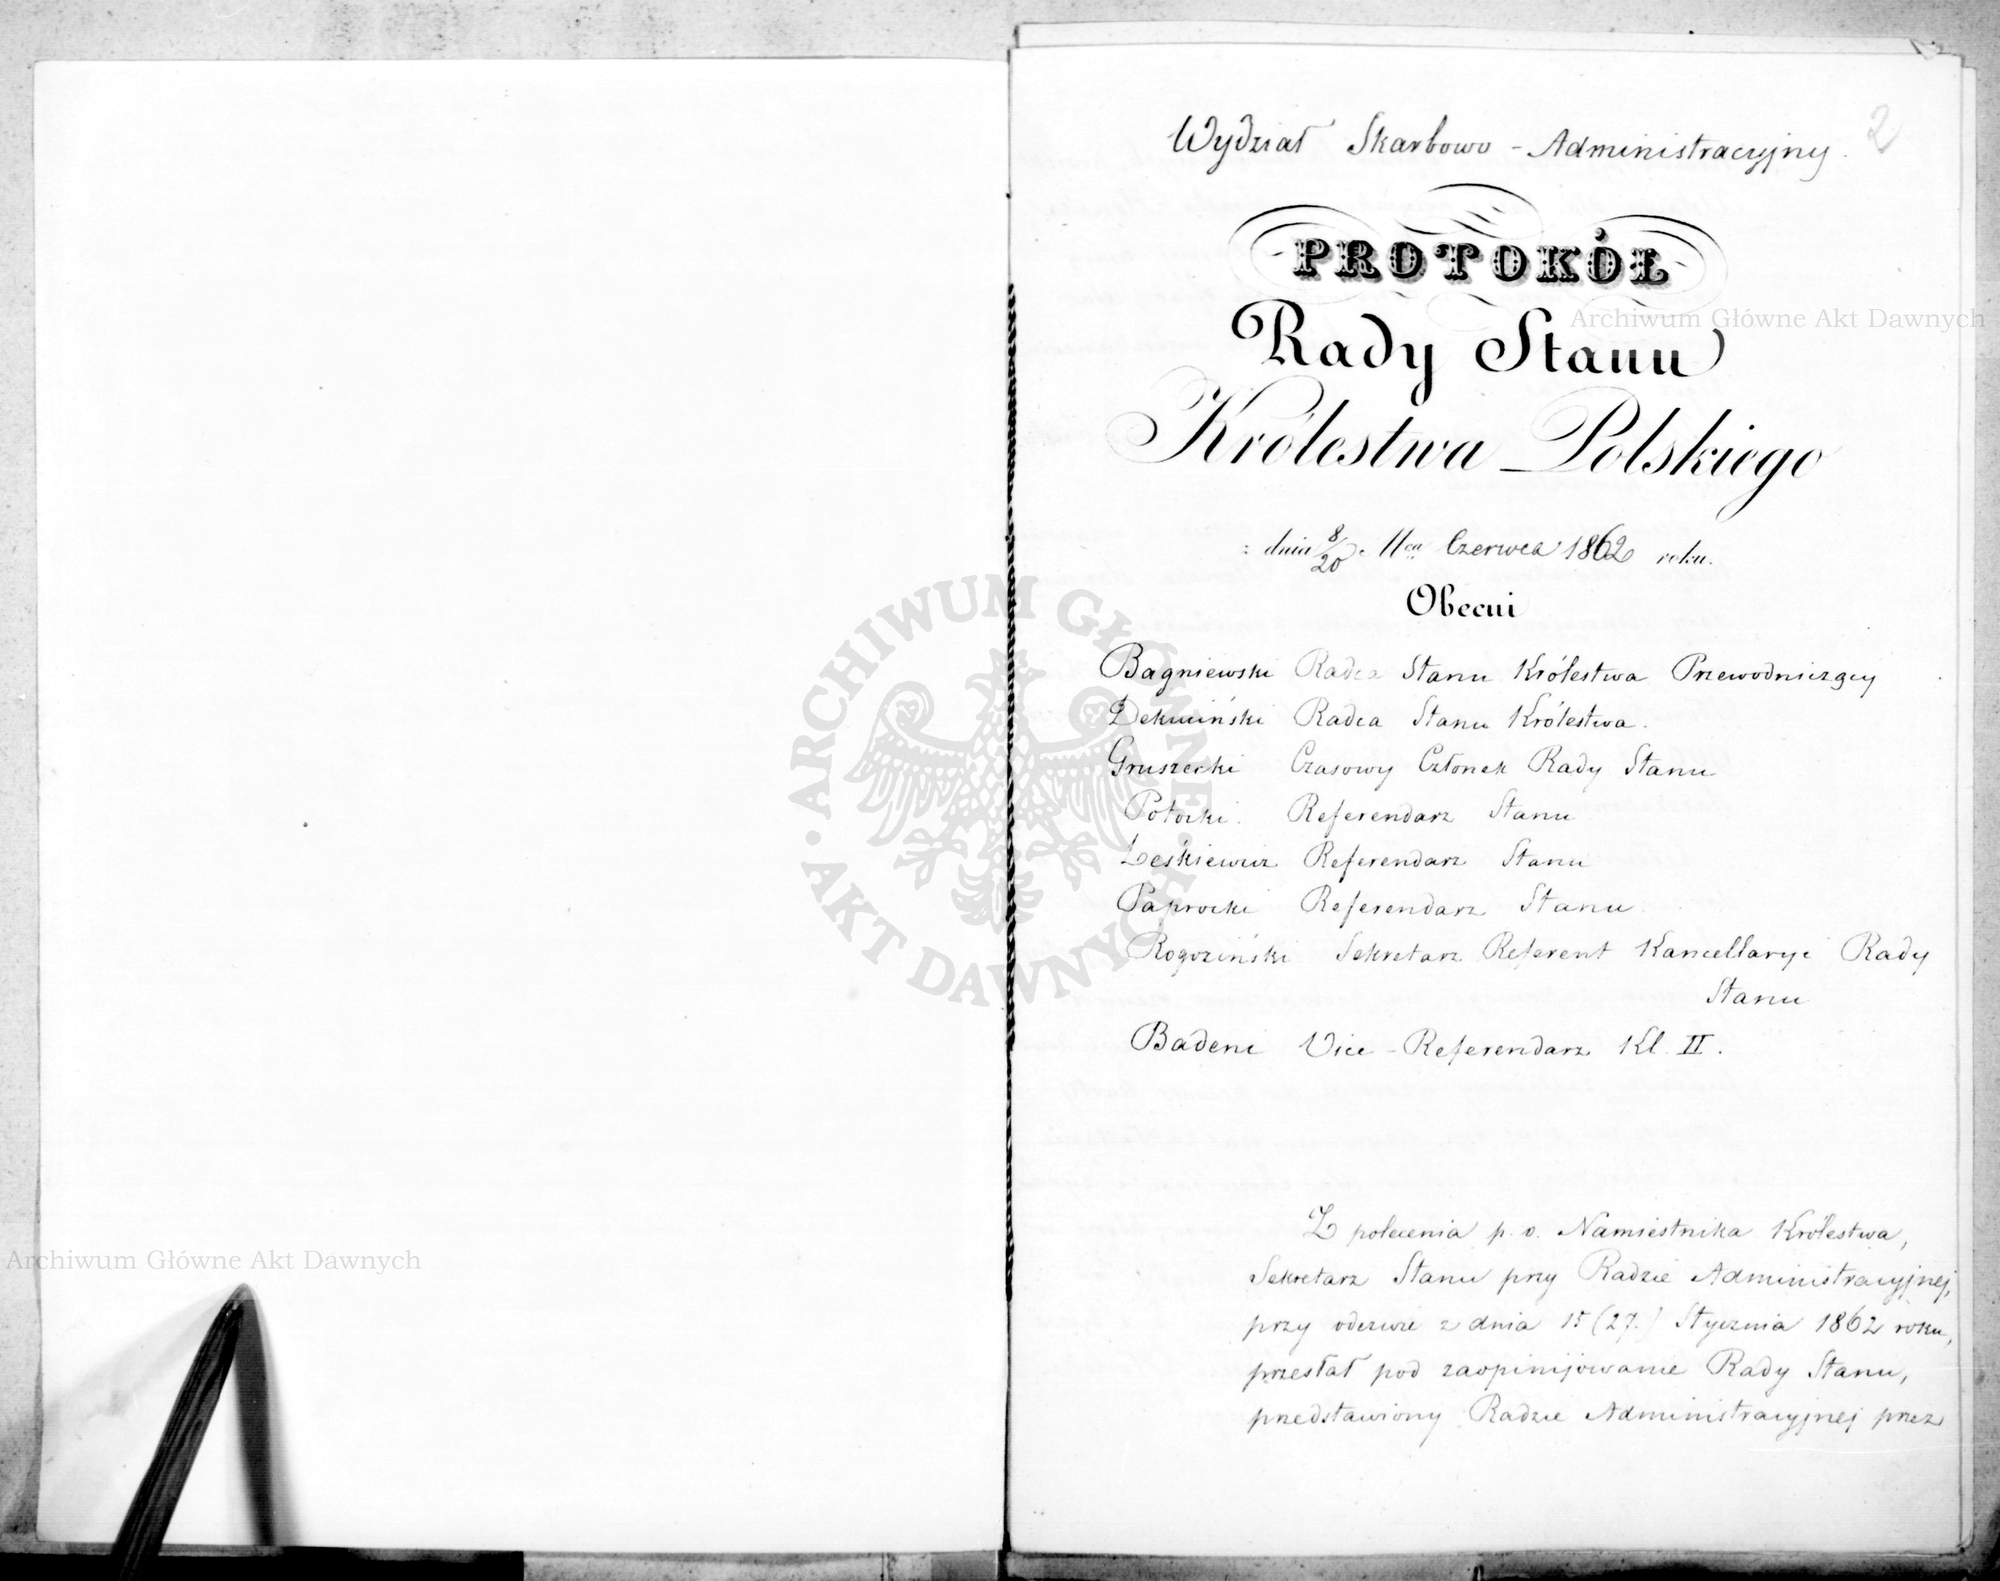 Wydział Skarbowo - Administracyjny.
2
PROTOKÓŁ
Rady Stanu
Królestwa Polskiego
z dnia 8/20 Czerwca 1862 roku.
Obecni
Bagniewski Radca Stanu Królestwa Przewodniczący
Radca Stanu Królestwa.
Gruszecki Czasowy Członek Rady Stanu
Potocki. Referendarz Stanu
Leśkiewicz Referendarz Stanu
Paprocki Referendarz Stanu
Rogoziński Sekretarz Referent Kancellaryi Rady
Stanu
Badeni Vice - Referendarz Kl. II.
Z polecenia p. o. Namiestnika Królestwa,
Sekretarz Stanu przy Radzie Administracyjnej,
przy odezwie z dnia 15 (27.) Stycznia 1862 roku,
przesłał pod zaopinijowanie Rady Stanu,
przedstawiony Radzie Administracyjnej przez
Archiwum Główne Akt Dawnych
Archiwum Główne Akt Dawnych
ARCHIWUM GŁÓWNE · AKT DAWNYCH ·